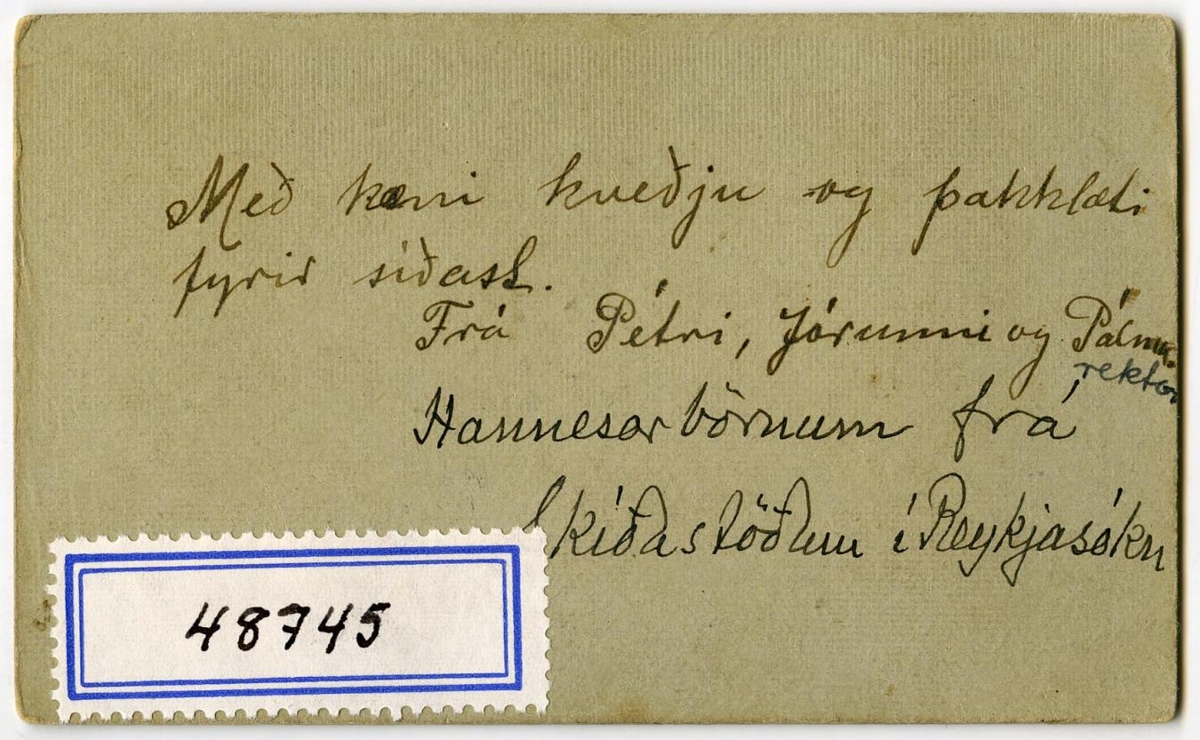 Með kæri kveðju og þakklæti
fyrir síðast.
Frá Pétri, Jórunni og Pálma.
rektor
Hannesarbörnum frá
Skíðastöðum í Reykjasókn
48745